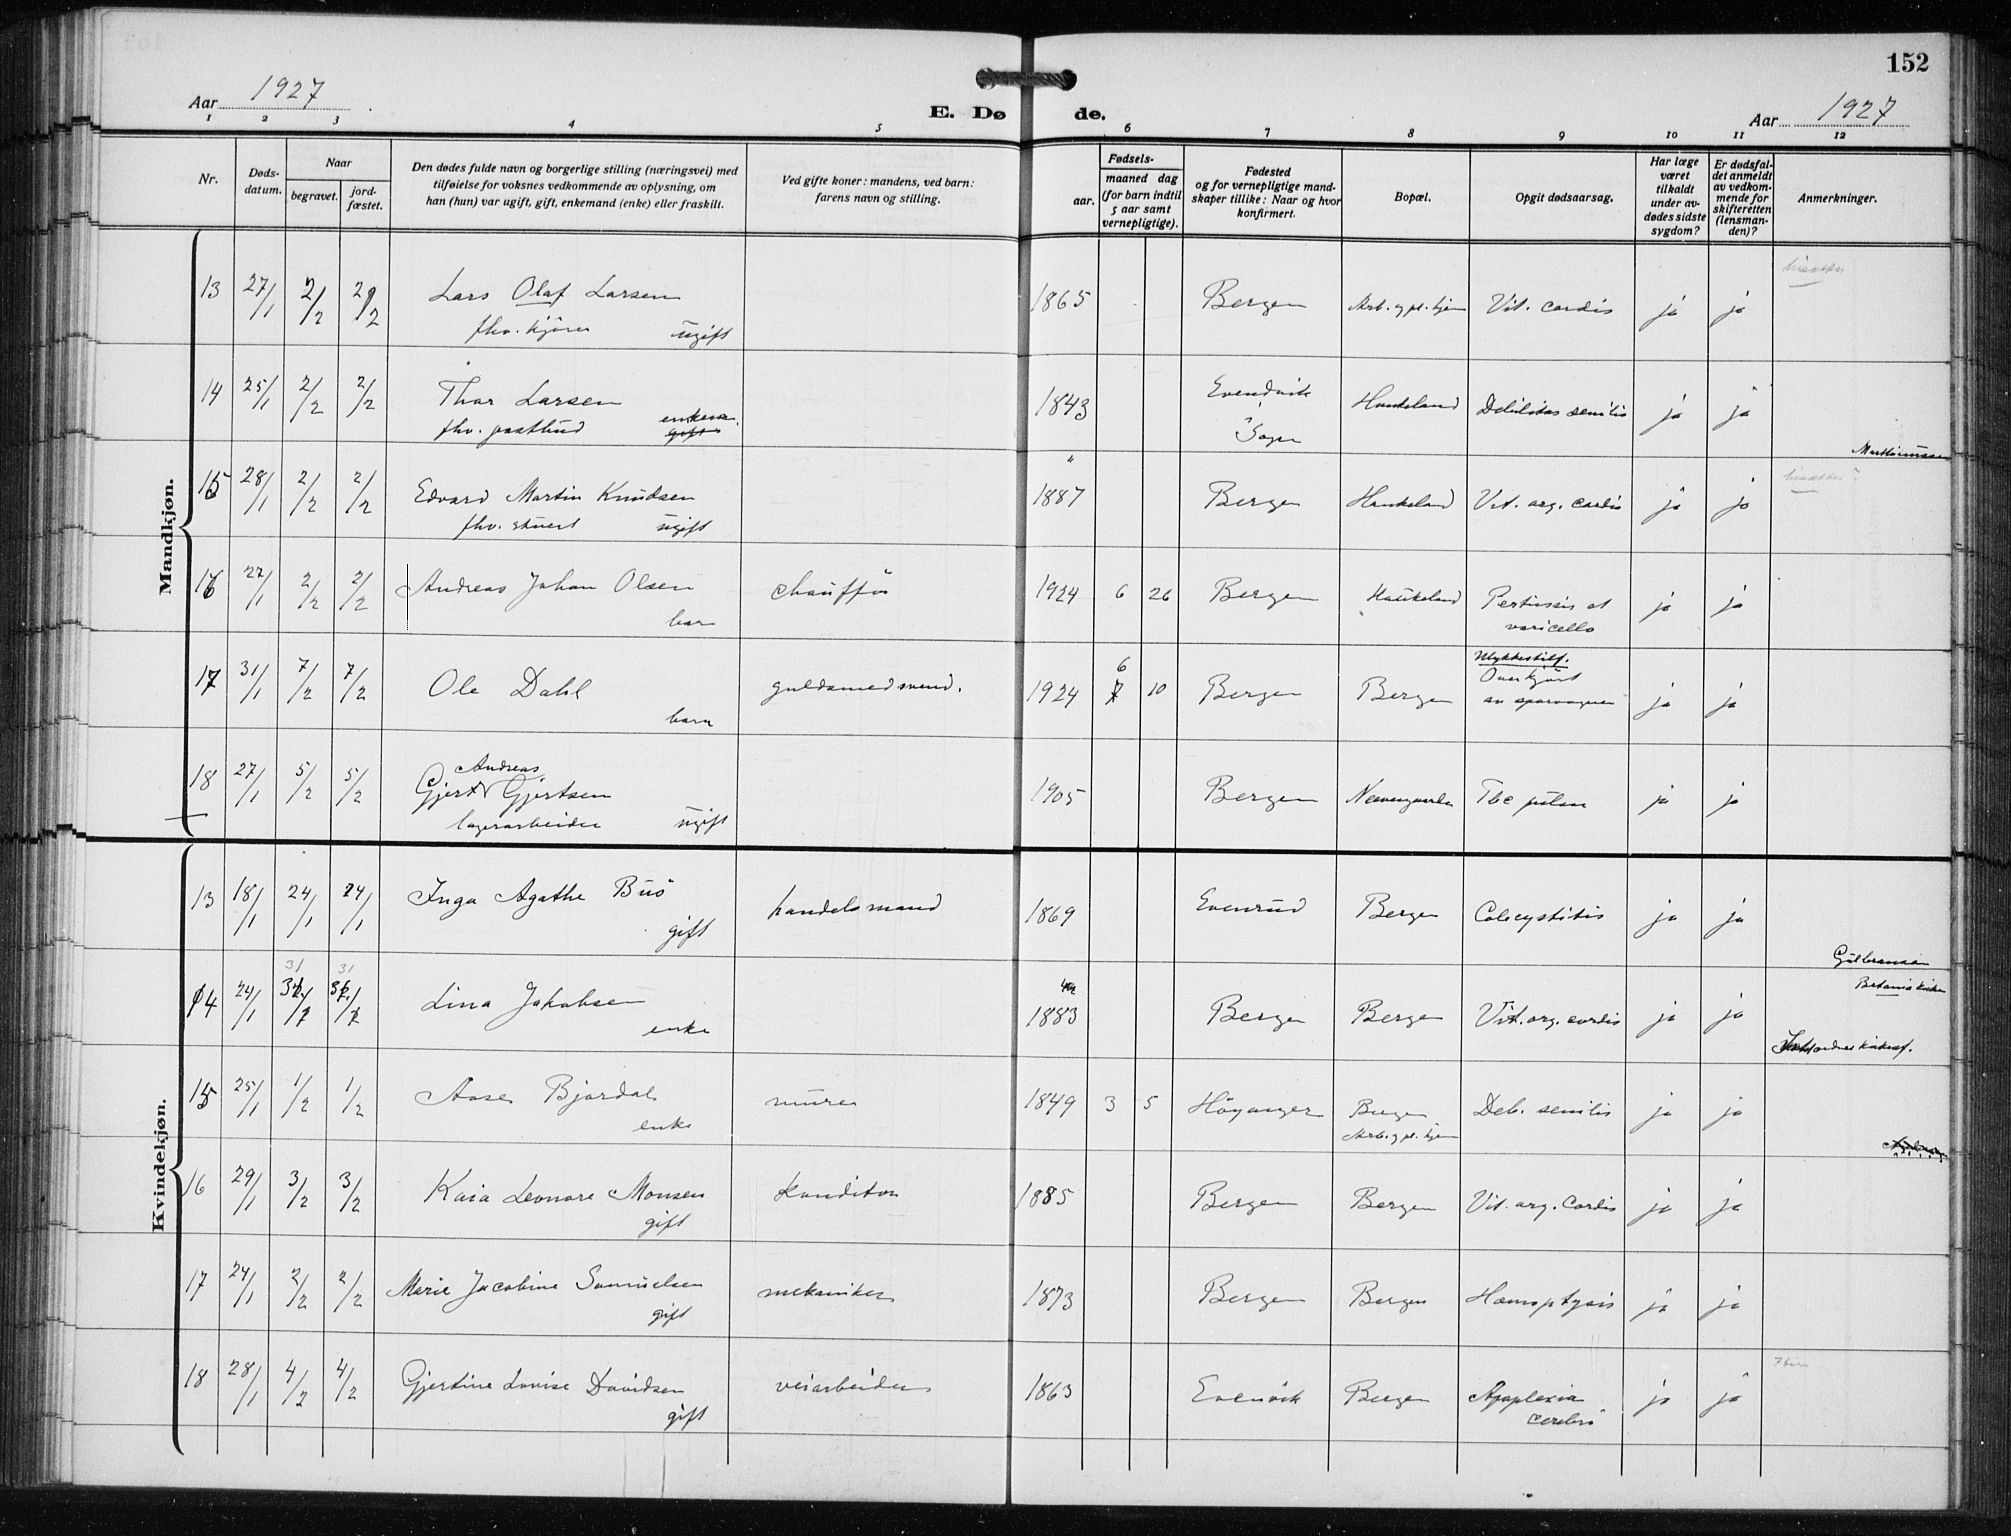 152
Aar 1927
E. Døde.
Aar 1927
1 2 3 4 5 6 7 8 9 10 11 12
Nr.
Døds-
datum.
Naar
begravet.
jord-
fæstet.
Den dødes fulde navn og borgerlige stilling (næringsvei) med
tilføielse for voksnes vedkommende av oplysning, om
han (hun) var ugift, gift, enkemand (enke) eller fraskilt.
Ved gifte koner: mandens, ved barn:
farens navn og stilling.
Fødsels-
aar.
maaned dag
(for barn indtil
5 aar samt
vernepligtige).
Fødested
og for vernepligtige mand-
skaper tillike: Naar og hvor
konfirmert.
Bopæl.
Opgit dødsaarsag.
Har læge
været
tilkaldt
under av-
dødes sidste
sygdom?
Er dødsfal-
det anmeldt
av vedkom-
mende for
skifteretten
(lensman-
den)?
Anmerkninger.
Mandkjøn.
13 27/1 2/2 2/2 Lars Olaf Larsen 1865 Bergen Arb. og pl. hjem Vit. cordis ja ja
fhv. kjører ugift
14 25/1 2/2 2/2 Thor Larsen 1843 Evendvik Haukeland Debilitas senilis ja ja
fhv. postbud enkem. gift Sogn
15 28/1 2/2 2/2 Edvard Martin Knudsen 1887 Bergen Haukeland Vit. org. cordis ja ja
fhv. stuert ugift
16 27/1 2/2 2/2 Andreas Johan Olsen chauffør 1924 6 26 Bergen Haukeland Pertussis et ja ja
barn varicello
17 31/1 7/2 7/2 Ole Dahl guldsmedsvend. 1924 6 10 Bergen Bergen Ulykkestilf. ja ja
barn Overkjørt
av sporvognen
18 27/1 5/2 5/2 Gjert Andreas Gjertsen 1905 Bergen Tbc pulm ja ja
lagerarbeider ugift
Kvindekjøn.
13 18/1 24/1 24/1 Inga Agathe Buö handelsmand 1869 Bergen Colecystitis ja ja
gift
14 24/1 31/1 31/1 Lina Jakobsen 1883 Bergen Bergen Vit. org. cordis ja ja
enke
Betaniakirken
15 25/1 1/2 1/2 Aase Bjordal murer 1849 3 5 Höyanger Bergen Deb. senilis ja ja
enke Arb. og pl. hjem
16 29/1 3/2 3/2 Kaia Leonore Monsen konditor 1885 Bergen Bergen Vit. org. Cordis ja ja
gift
17 24/1 2/2 2/2 Marie Jacobine Samuelsen mekaniker 1873 Bergen Bergen Hæmoptysis ja ja
gift
18 28/1 4/2 4/2 Gjertine Lovise Davidsen veiarbeider 1863 Evenvik Bergen Apoplexia ja ja
gift cerebri